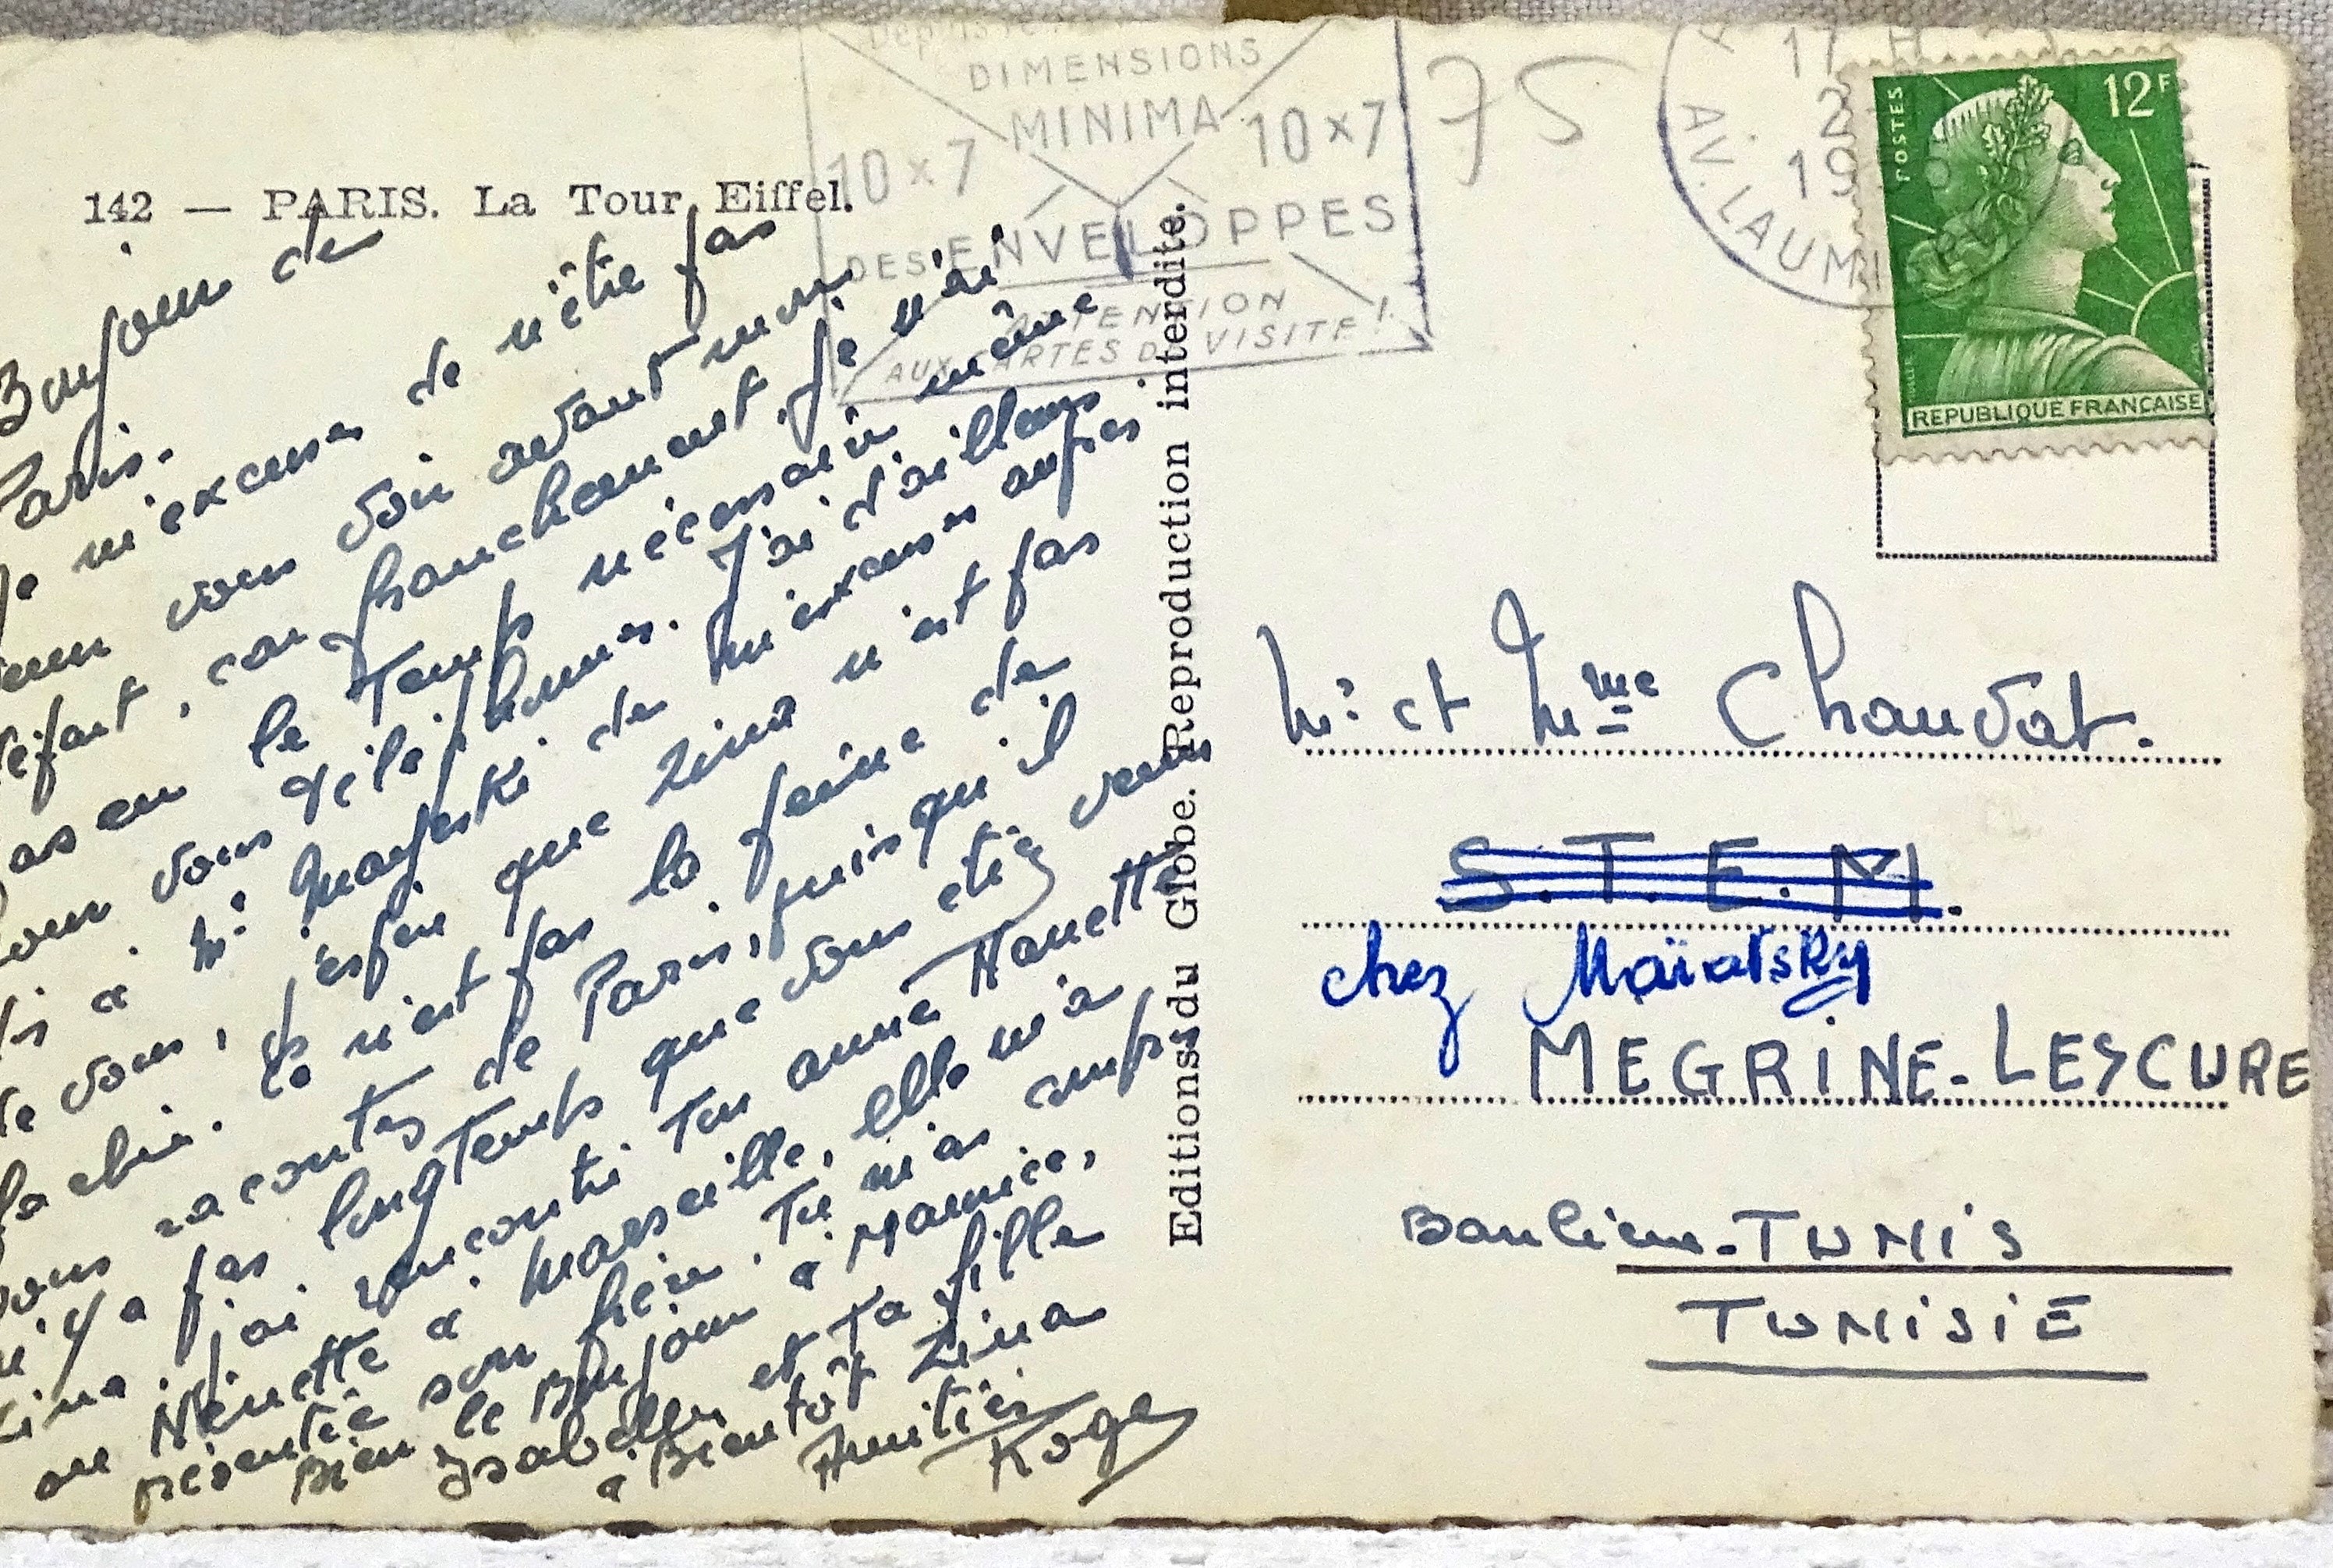 142 — PARIS. La Tour Eiffel.
Bonjour de
Paris.
Je m'excuse de n'être pas
venu vous voir avant mon
départ, car franchement je n'ai
pas eu le temps nécessaire même
pour vous téléphoner. J'ai d'ailleurs
dis à Mr de m'excuser auprès
de vous, j'espère que Zina n'est pas
fachée. Ce n'est pas la peine de
vous raconter de Paris, puis qu'il
n'y a pas longtemps que vous étiez
Zina, j'ai rencontré ton amie Nanette
ou Ninette à Marseille, elle m'a
présenté son frère. Tu m'as compris
Bien le Bonjour à Maurice,
Isabelle et ta fille
à Bientôt Zina
Amitiés
Roger
Editions du Globe. Reproduction interdite.
DIMENSIONS
MINIMA
10 x 7 10 x 7
DES ENVELOPPES
ATTENTION
AUX CARTES DE VISITE!
75
17 H
2
19
AV. LAUMI
POSTES
12F
REPUBLIQUE FRANÇAISE
Mr et Mme Chauvat.
S.T.E.M.
chez Maïatsky
MEGRINE-LESCURE
Banlieue-TUNIS
TUNISIE